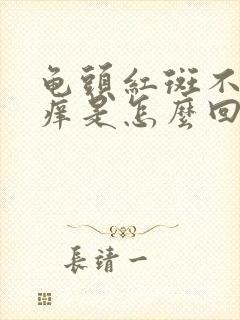 龟頭紅斑不
痒是怎麼回
長靖一